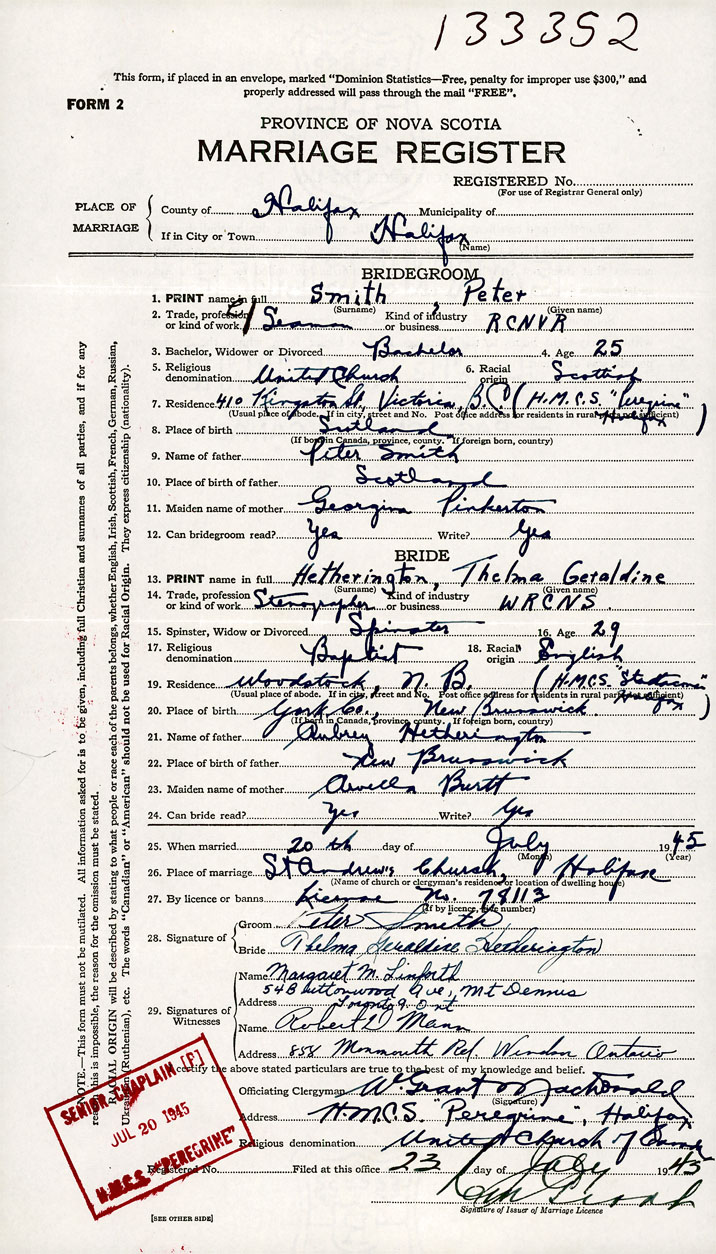 133352
This form, if placed in an envelope, marked “Dominion Statistics—Free, penalty for improper use $300,” and
properly addressed will pass through the mail “FREE”.
FORM 2
PROVINCE OF NOVA SCOTIA
MARRIAGE REGISTER
REGISTERED No.
(For use of Registrar General only)
PLACE OF MARRIAGE
County of Halifax Municipality of
If in City or Town Halifax
(Name)
BRIDEGROOM
1. PRINT name in full Smith, Peter
(Surname) (Given name)
2. Trade, profession or kind of work Seaman Kind of industry or business RCNVR
3. Bachelor, Widower or Divorced Bachelor 4. Age 25
5. Religious denomination United Church 6. Racial origin Scottish
7. Residence 410 Kingston St, Victoria, B.C. (H.M.C.S. "Peregrine" Halifax)
(Usual place of abode. If in city, street and No. Post office address for residents in rural parts sufficient)
8. Place of birth Scotland
(If born in Canada, province, county. If foreign born, country)
9. Name of father Peter Smith
10. Place of birth of father Scotland
11. Maiden name of mother Georgina Pinkerton
12. Can bridegroom read? Yes Write? Yes
BRIDE
13. PRINT name in full Hetherington, Thelma Geraldine
(Surname) (Given name)
14. Trade, profession or kind of work Stenographer Kind of industry or business WRCNS
15. Spinster, Widow or Divorced Spinster 16. Age 29
17. Religious denomination Baptist 18. Racial origin English
19. Residence Woodstock, N.B. (H.M.C.S. "Stadacona" Halifax)
(Usual place of abode. If in city, street and No. Post office address for residents in rural parts sufficient)
20. Place of birth York Co., New Brunswick
(If born in Canada, province, county. If foreign born, country)
21. Name of father Aubrey Hetherington
22. Place of birth of father New Brunswick
23. Maiden name of mother Arvella Burtt
24. Can bride read? Yes Write? Yes
25. When married 20th day of July 1945
(Month) (Year)
26. Place of marriage St Andrew's Church, Halifax
(Name of church or clergyman's residence or location of dwelling house)
27. By licence or banns License No. 78113
(If by licence, give number)
28. Signature of
Groom Peter Smith
Bride Thelma Geraldine Hetherington
29. Signatures of Witnesses
Name Margaret M. Linforth
54 Buttonwood Ave, Mt Dennis
Address Toronto 9. Ont
Name Robert D Mann
Address 858 Monmouth Rd. Windsor Ontario
I certify the above stated particulars are true to the best of my knowledge and belief.
Officiating Clergyman W. Grant MacDonald
(Signature)
Address H.M.C.S. "Peregrine", Halifax
Religious denomination United Church of Canada
Registered No. Filed at this office 23 day of July 1945
Signature of Issuer of Marriage Licence
[SEE OTHER SIDE]
SENIOR CHAPLAIN [P]
JUL 20 1945
H.M.C.S. "PEREGRINE"
NOTE.—This form must not be mutilated. All information asked for is to be given, including full Christian and surnames of all parties, and if for any
reason this is impossible, the reason for the omission must be stated.
RACIAL ORIGIN will be described by stating to what people or race each of the parents belongs, whether English, Irish, Scottish, French, German, Russian,
Ukrainian (Ruthenian), etc. The words “Canadian” or “American” should not be used for Racial Origin. They express citizenship (nationality).